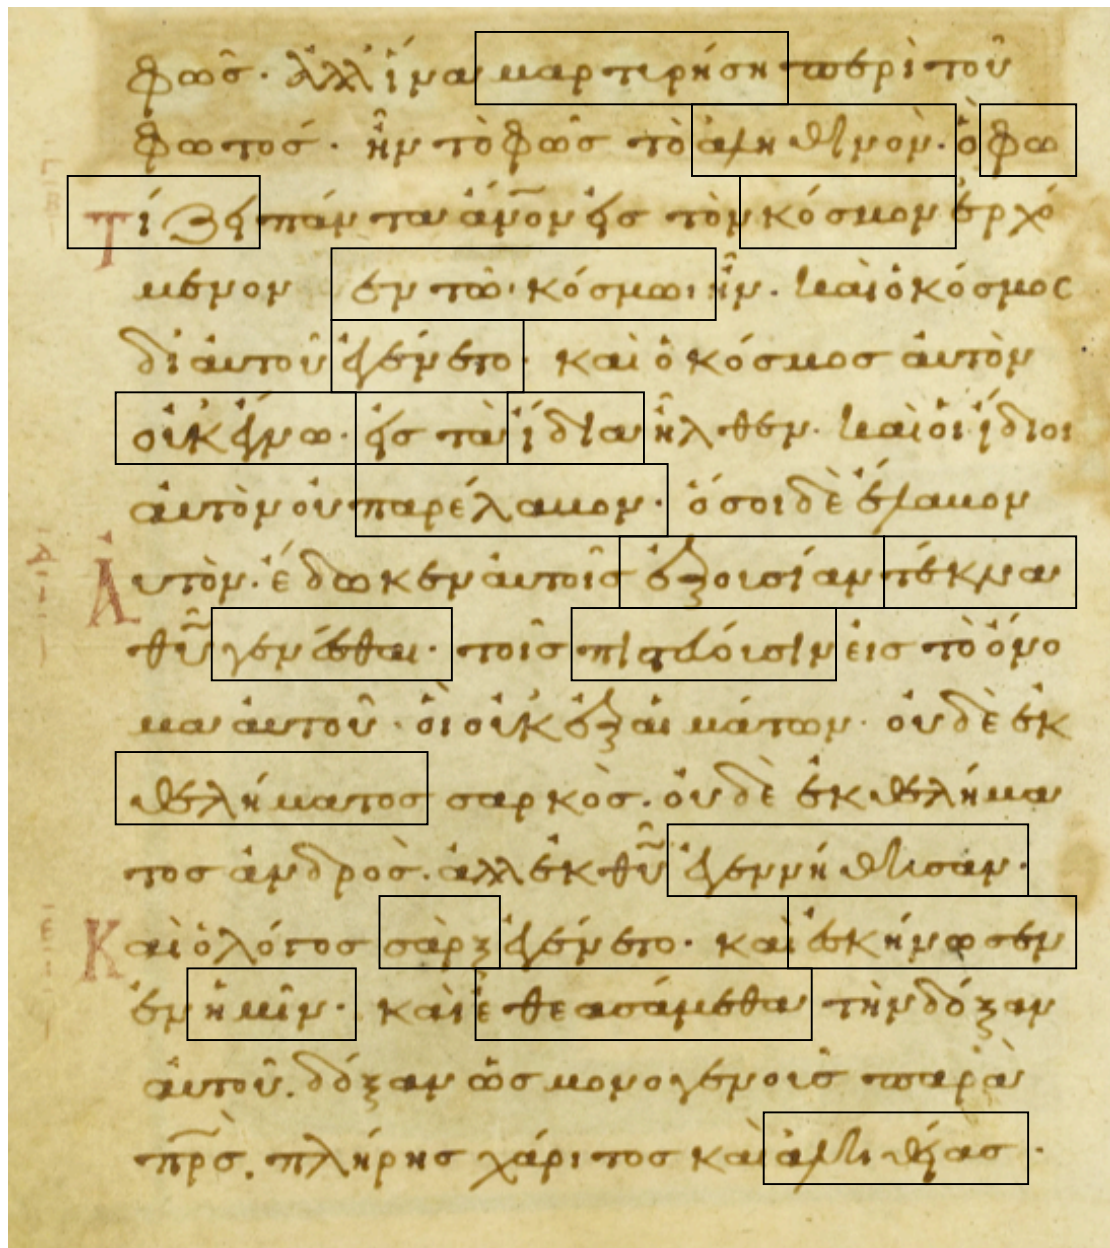 φῶς· ἀλλ' ἵνα μαρτιρήση περὶ τοῦ
φωτός· ἦν τὸ φῶς τὸ ἀληθινὸν· ὃ φω
τίζει πάντα ἄνον εἰς τὸν κόσμον ἐρχό
μενον ἐν τῶ κόσμω· ἦν· καὶ ὁ κόσμος
δι' αὐτοῦ ἐγένετο· καὶ ὁ κόσμος αὐτὸν
οὐκ ἔγνω· εἰς τὰ ἴδια ἦλθεν· καὶ οἱ ἴδιοι
αὐτὸν οὐ παρέλαβον· ὅσοι δὲ ἔλαβον
Αὐτὸν· ἔδωκεν αὐτοῖς ἐξουσίαν τέκνα
θῦ γενέσθαι· τοῖς πιστεύουσιν εἰς τὸ ὄνο
μα αὐτοῦ· οἳ οὐκ ἐξ αἱμάτων· οὐδὲ ἐκ
θελήματος σαρκὸς· οὐδὲ ἐκ θελήμα
τος ἀνδρὸς· ἀλλ' ἐκ θῦ ἐγεννήθησαν·
Καὶ ὁ λόγος σὰρξ ἐγένετο· καὶ ἐσκήνωσεν
ἐν ἡμῖν· καὶ ἐθεασάμεθα τὴν δόξαν
αὐτοῦ. δόξαν ὡς μονογενοῦς παρὰ
πρς. πλήρης χάριτος καὶ ἀληθείας·